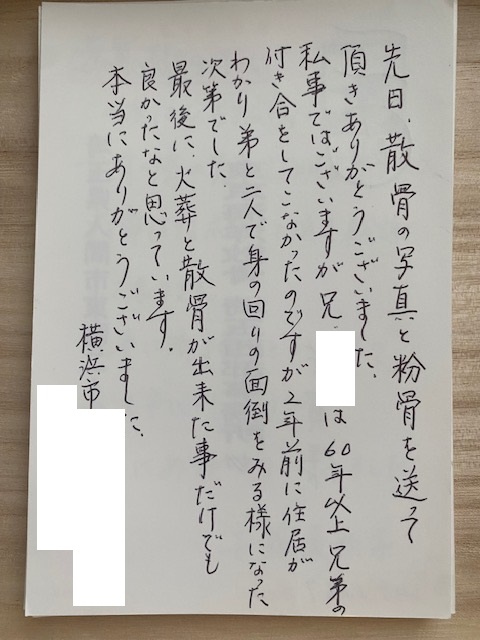 先日、散骨の写真と粉骨を送って
頂きありがとうございました。
私事ではございますが兄、は60年以上兄弟の
付き合をしてこなかったのですが2年前に住居が
わかり弟と二人で身の回りの面倒をみる様になった
次第でした。
最後に、火葬と散骨が出来た事だけでも
良かったなと思っています。
本当にありがとうございました。
横浜市